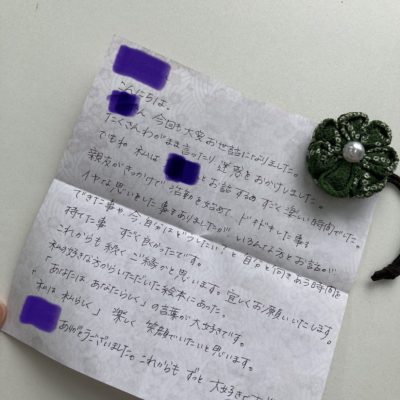 こんにちは。
さん 今回も大変お世話になりました。
たくさんわがまま言ったり、迷惑をおかけしました。
でもね 私は とお話する時 すごく楽しい時間でした。
親友がきっかけで 活動を始めて ドキドキした事も
イヤな思いをした事もありましたが いろんな方とお話が
できた事や、今自分はどうしたい？と自分と向きあう時間を
持てた事 すごく良かったです。
これからも続くご縁かと思います。宜しくお願いいたします。
私の好きな方からいただいた絵本にあった、
「あなたは あなたらしく」の言葉が大好きです。
「私は 私らしく」 楽しく 笑顔でいたいと思います。
ありがとうございました。これからも ずっと 大好きで